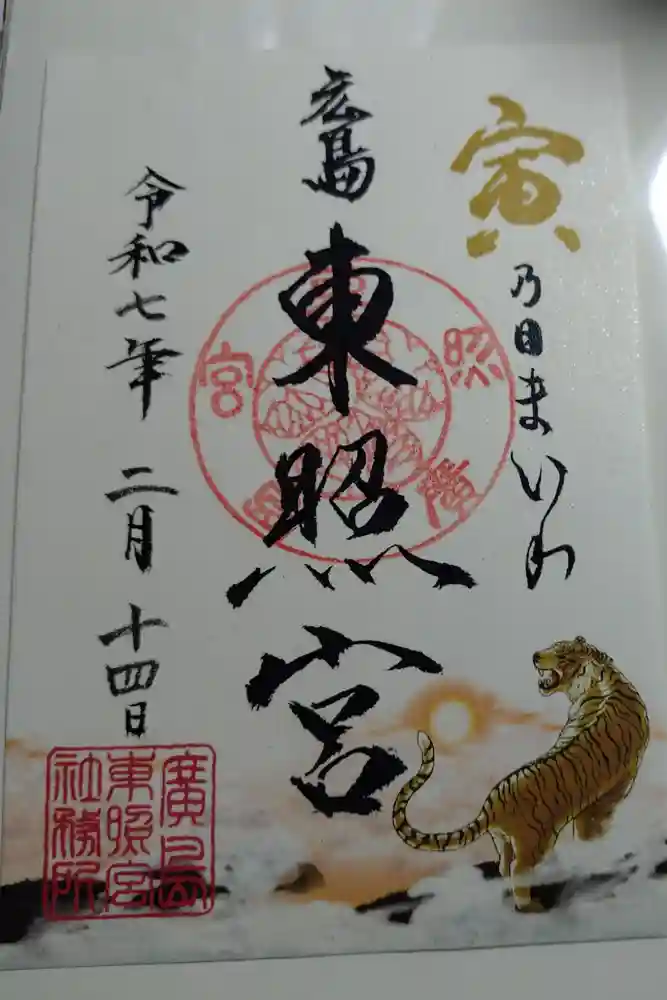 寅
乃日まいり
広島
東照宮
令和七年 二月 十四日
廣島
東照宮
社務所